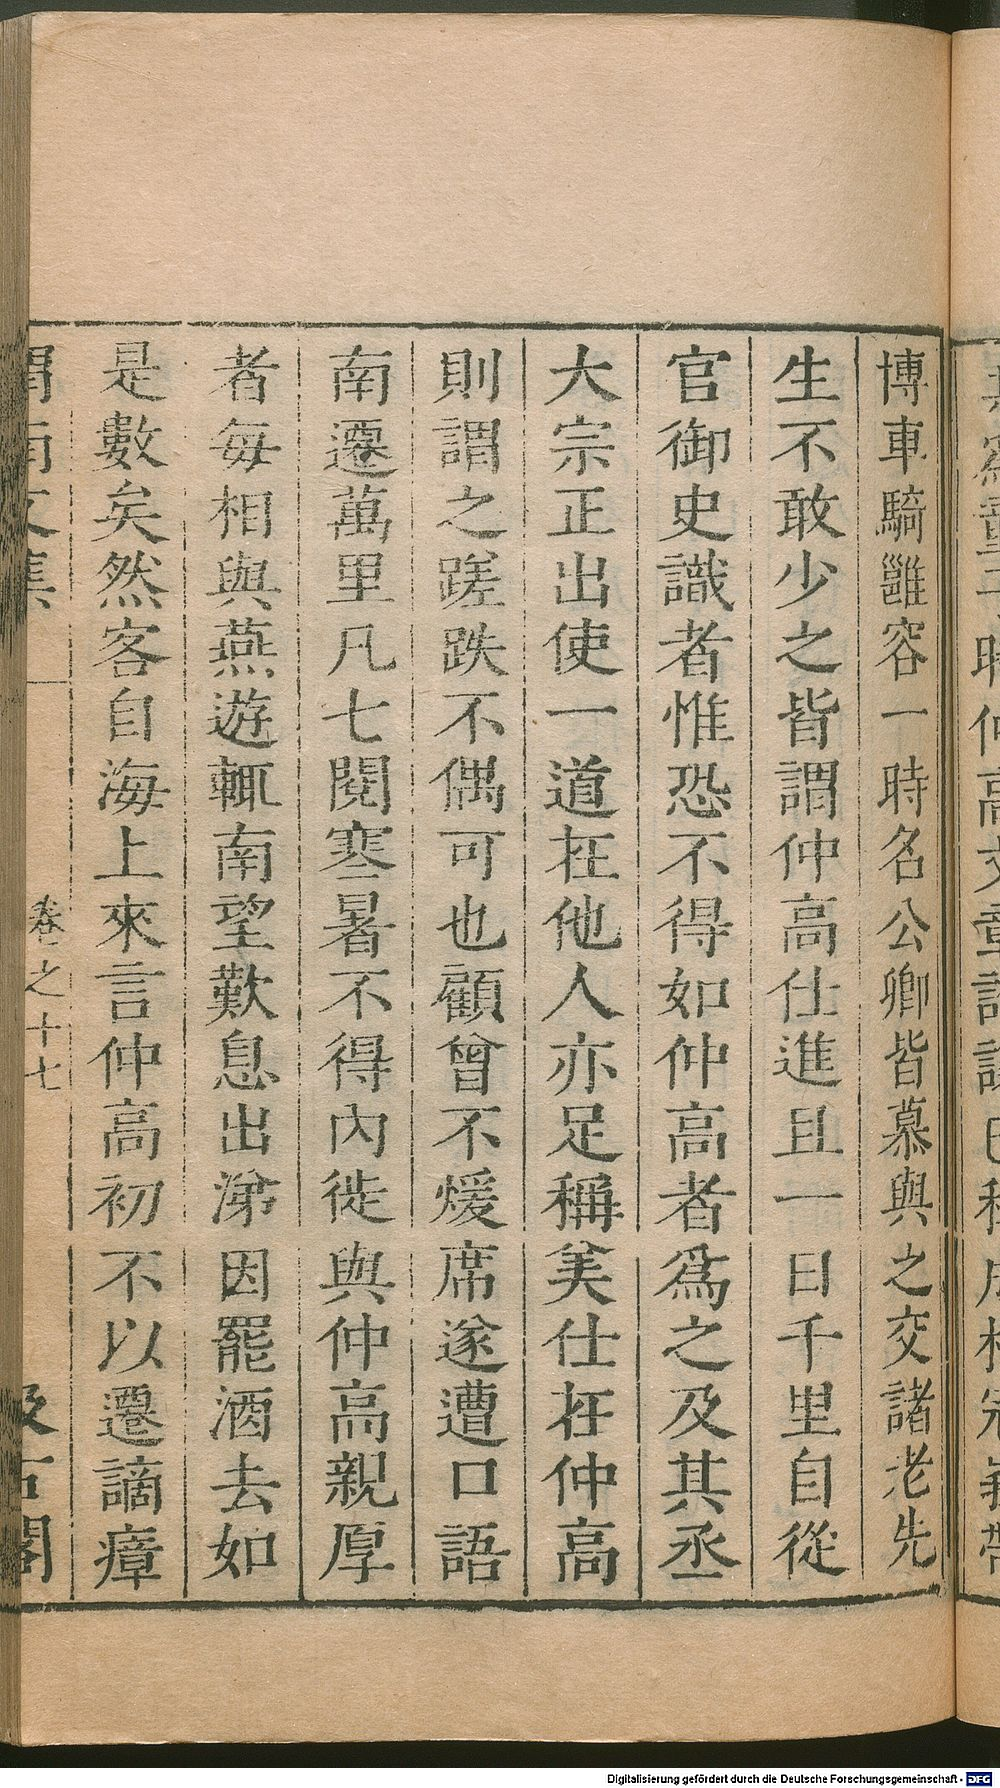 博車騎雝容一時名公卿皆慕與之交諸老先
生不敢少之皆謂仲高仕進且一日千里自從
官御史識者惟恐不得如仲高者爲之及其丞
大宗正出使一道在他人亦足稱美仕在仲高
則謂之蹉跌不偶可也顧曾不煖席遂遭口語
南遷萬里凡七閱寒暑不得內徙與仲高親厚
者每相與燕遊輒南望歎息出涕因罷酒去如
是數矣然客自海上來言仲高初不以遷謫瘴
渭南文集 卷之十七 汲古閣
Digitalisierung gefördert durch die Deutsche Forschungsgemeinschaft - DFG